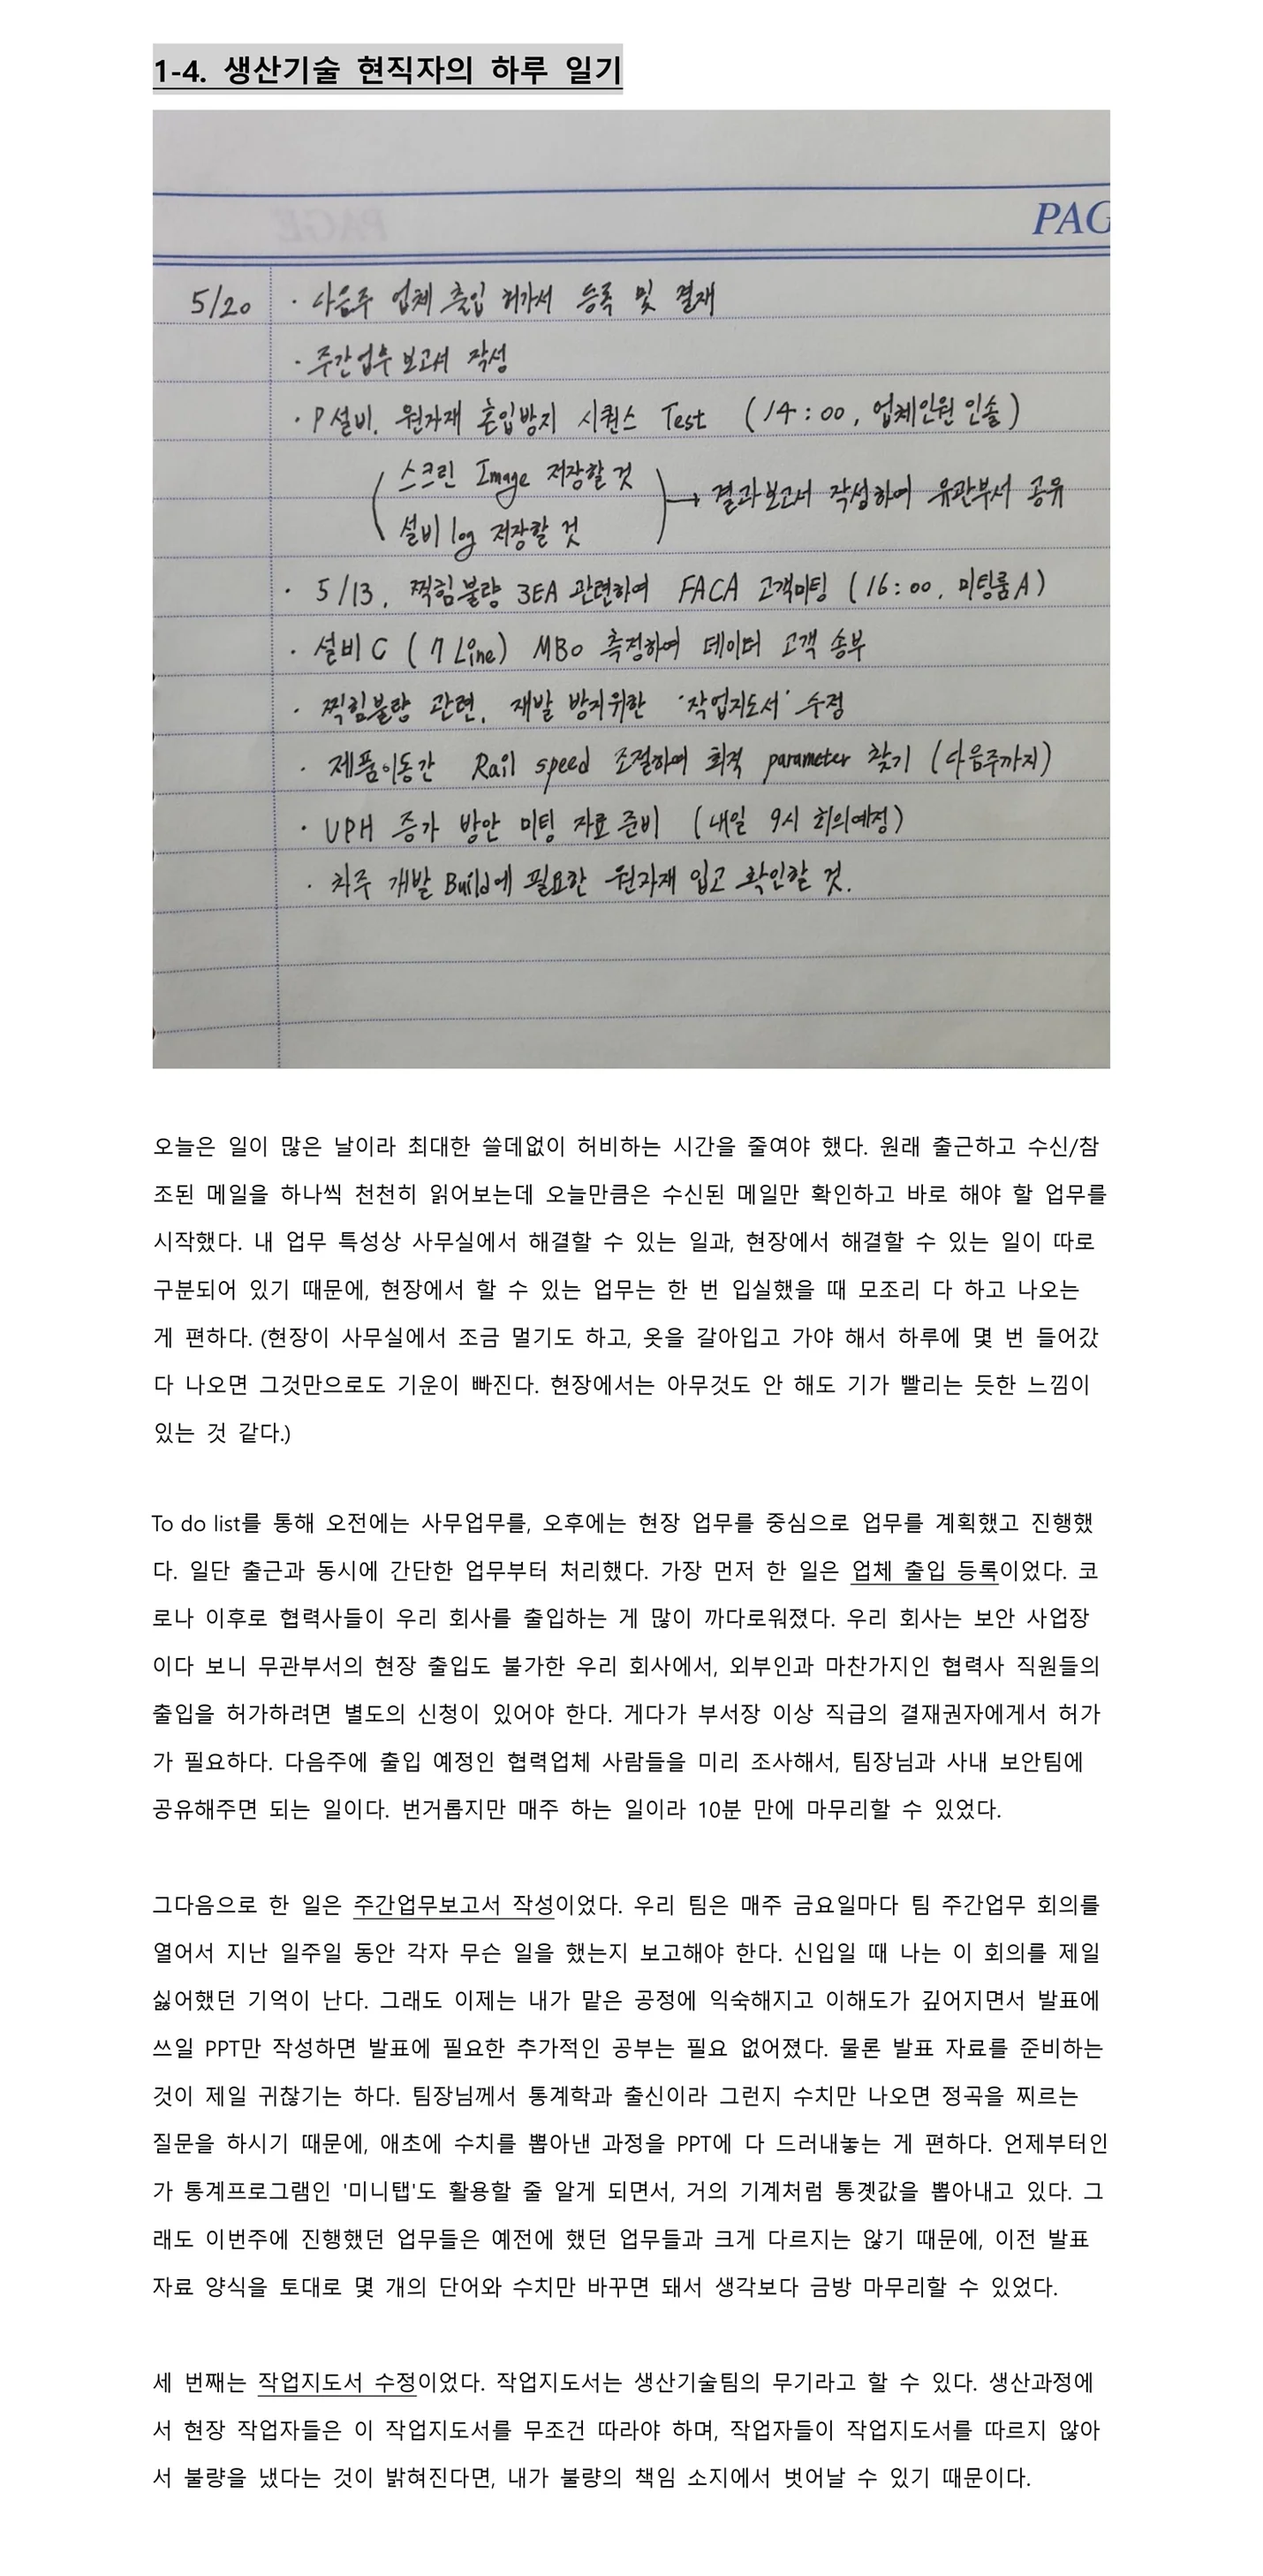 1-4. 생산기술 현직자의 하루 일기
PAG
5/20 · 다음주 업체 출입 허가서 등록 및 결재
· 주간업무 보고서 작성
· P설비. 원자재 혼입방지 시퀀스 Test (14:00, 업체인원 인솔)
스크린 Image 저장할 것
설비 log 저장할 것
→ 결과보고서 작성하여 유관부서 공유
· 5/13, 찍힘불량 3EA 관련하여 FACA 고객미팅 (16:00, 미팅룸A)
· 설비 C (7 Line) MBo 측정하여 데이터 고객 송부
· 찍힘불량 관련, 재발 방지위한 '작업지도서' 수정
· 제품이동간 Rail speed 조절하여 최적 parameter 찾기 (다음주까지)
· UPH 증가 방안 미팅 자료 준비 (내일 9시 회의예정)
· 차주 개발 Build에 필요한 원자재 입고 확인할 것.
오늘은 일이 많은 날이라 최대한 쓸데없이 허비하는 시간을 줄여야 했다. 원래 출근하고 수신/참
조된 메일을 하나씩 천천히 읽어보는데 오늘만큼은 수신된 메일만 확인하고 바로 해야 할 업무를
시작했다. 내 업무 특성상 사무실에서 해결할 수 있는 일과, 현장에서 해결할 수 있는 일이 따로
구분되어 있기 때문에, 현장에서 할 수 있는 업무는 한 번 입실했을 때 모조리 다 하고 나오는
게 편하다. (현장이 사무실에서 조금 멀기도 하고, 옷을 갈아입고 가야 해서 하루에 몇 번 들어갔
다 나오면 그것만으로도 기운이 빠진다. 현장에서는 아무것도 안 해도 기가 빨리는 듯한 느낌이
있는 것 같다.)
To do list를 통해 오전에는 사무업무를, 오후에는 현장 업무를 중심으로 업무를 계획했고 진행했
다. 일단 출근과 동시에 간단한 업무부터 처리했다. 가장 먼저 한 일은 업체 출입 등록이었다. 코
로나 이후로 협력사들이 우리 회사를 출입하는 게 많이 까다로워졌다. 우리 회사는 보안 사업장
이다 보니 무관부서의 현장 출입도 불가한 우리 회사에서, 외부인과 마찬가지인 협력사 직원들의
출입을 허가하려면 별도의 신청이 있어야 한다. 게다가 부서장 이상 직급의 결재권자에게서 허가
가 필요하다. 다음주에 출입 예정인 협력업체 사람들을 미리 조사해서, 팀장님과 사내 보안팀에
공유해주면 되는 일이다. 번거롭지만 매주 하는 일이라 10분 만에 마무리할 수 있었다.
그다음으로 한 일은 주간업무보고서 작성이었다. 우리 팀은 매주 금요일마다 팀 주간업무 회의를
열어서 지난 일주일 동안 각자 무슨 일을 했는지 보고해야 한다. 신입일 때 나는 이 회의를 제일
싫어했던 기억이 난다. 그래도 이제는 내가 맡은 공정에 익숙해지고 이해도가 깊어지면서 발표에
쓰일 PPT만 작성하면 발표에 필요한 추가적인 공부는 필요 없어졌다. 물론 발표 자료를 준비하는
것이 제일 귀찮기는 하다. 팀장님께서 통계학과 출신이라 그런지 수치만 나오면 정곡을 찌르는
질문을 하시기 때문에, 애초에 수치를 뽑아낸 과정을 PPT에 다 드러내놓는 게 편하다. 언제부터인
가 통계프로그램인 '미니탭'도 활용할 줄 알게 되면서, 거의 기계처럼 통곗값을 뽑아내고 있다. 그
래도 이번주에 진행했던 업무들은 예전에 했던 업무들과 크게 다르지는 않기 때문에, 이전 발표
자료 양식을 토대로 몇 개의 단어와 수치만 바꾸면 돼서 생각보다 금방 마무리할 수 있었다.
세 번째는 작업지도서 수정이었다. 작업지도서는 생산기술팀의 무기라고 할 수 있다. 생산과정에
서 현장 작업자들은 이 작업지도서를 무조건 따라야 하며, 작업자들이 작업지도서를 따르지 않아
서 불량을 냈다는 것이 밝혀진다면, 내가 불량의 책임 소지에서 벗어날 수 있기 때문이다.